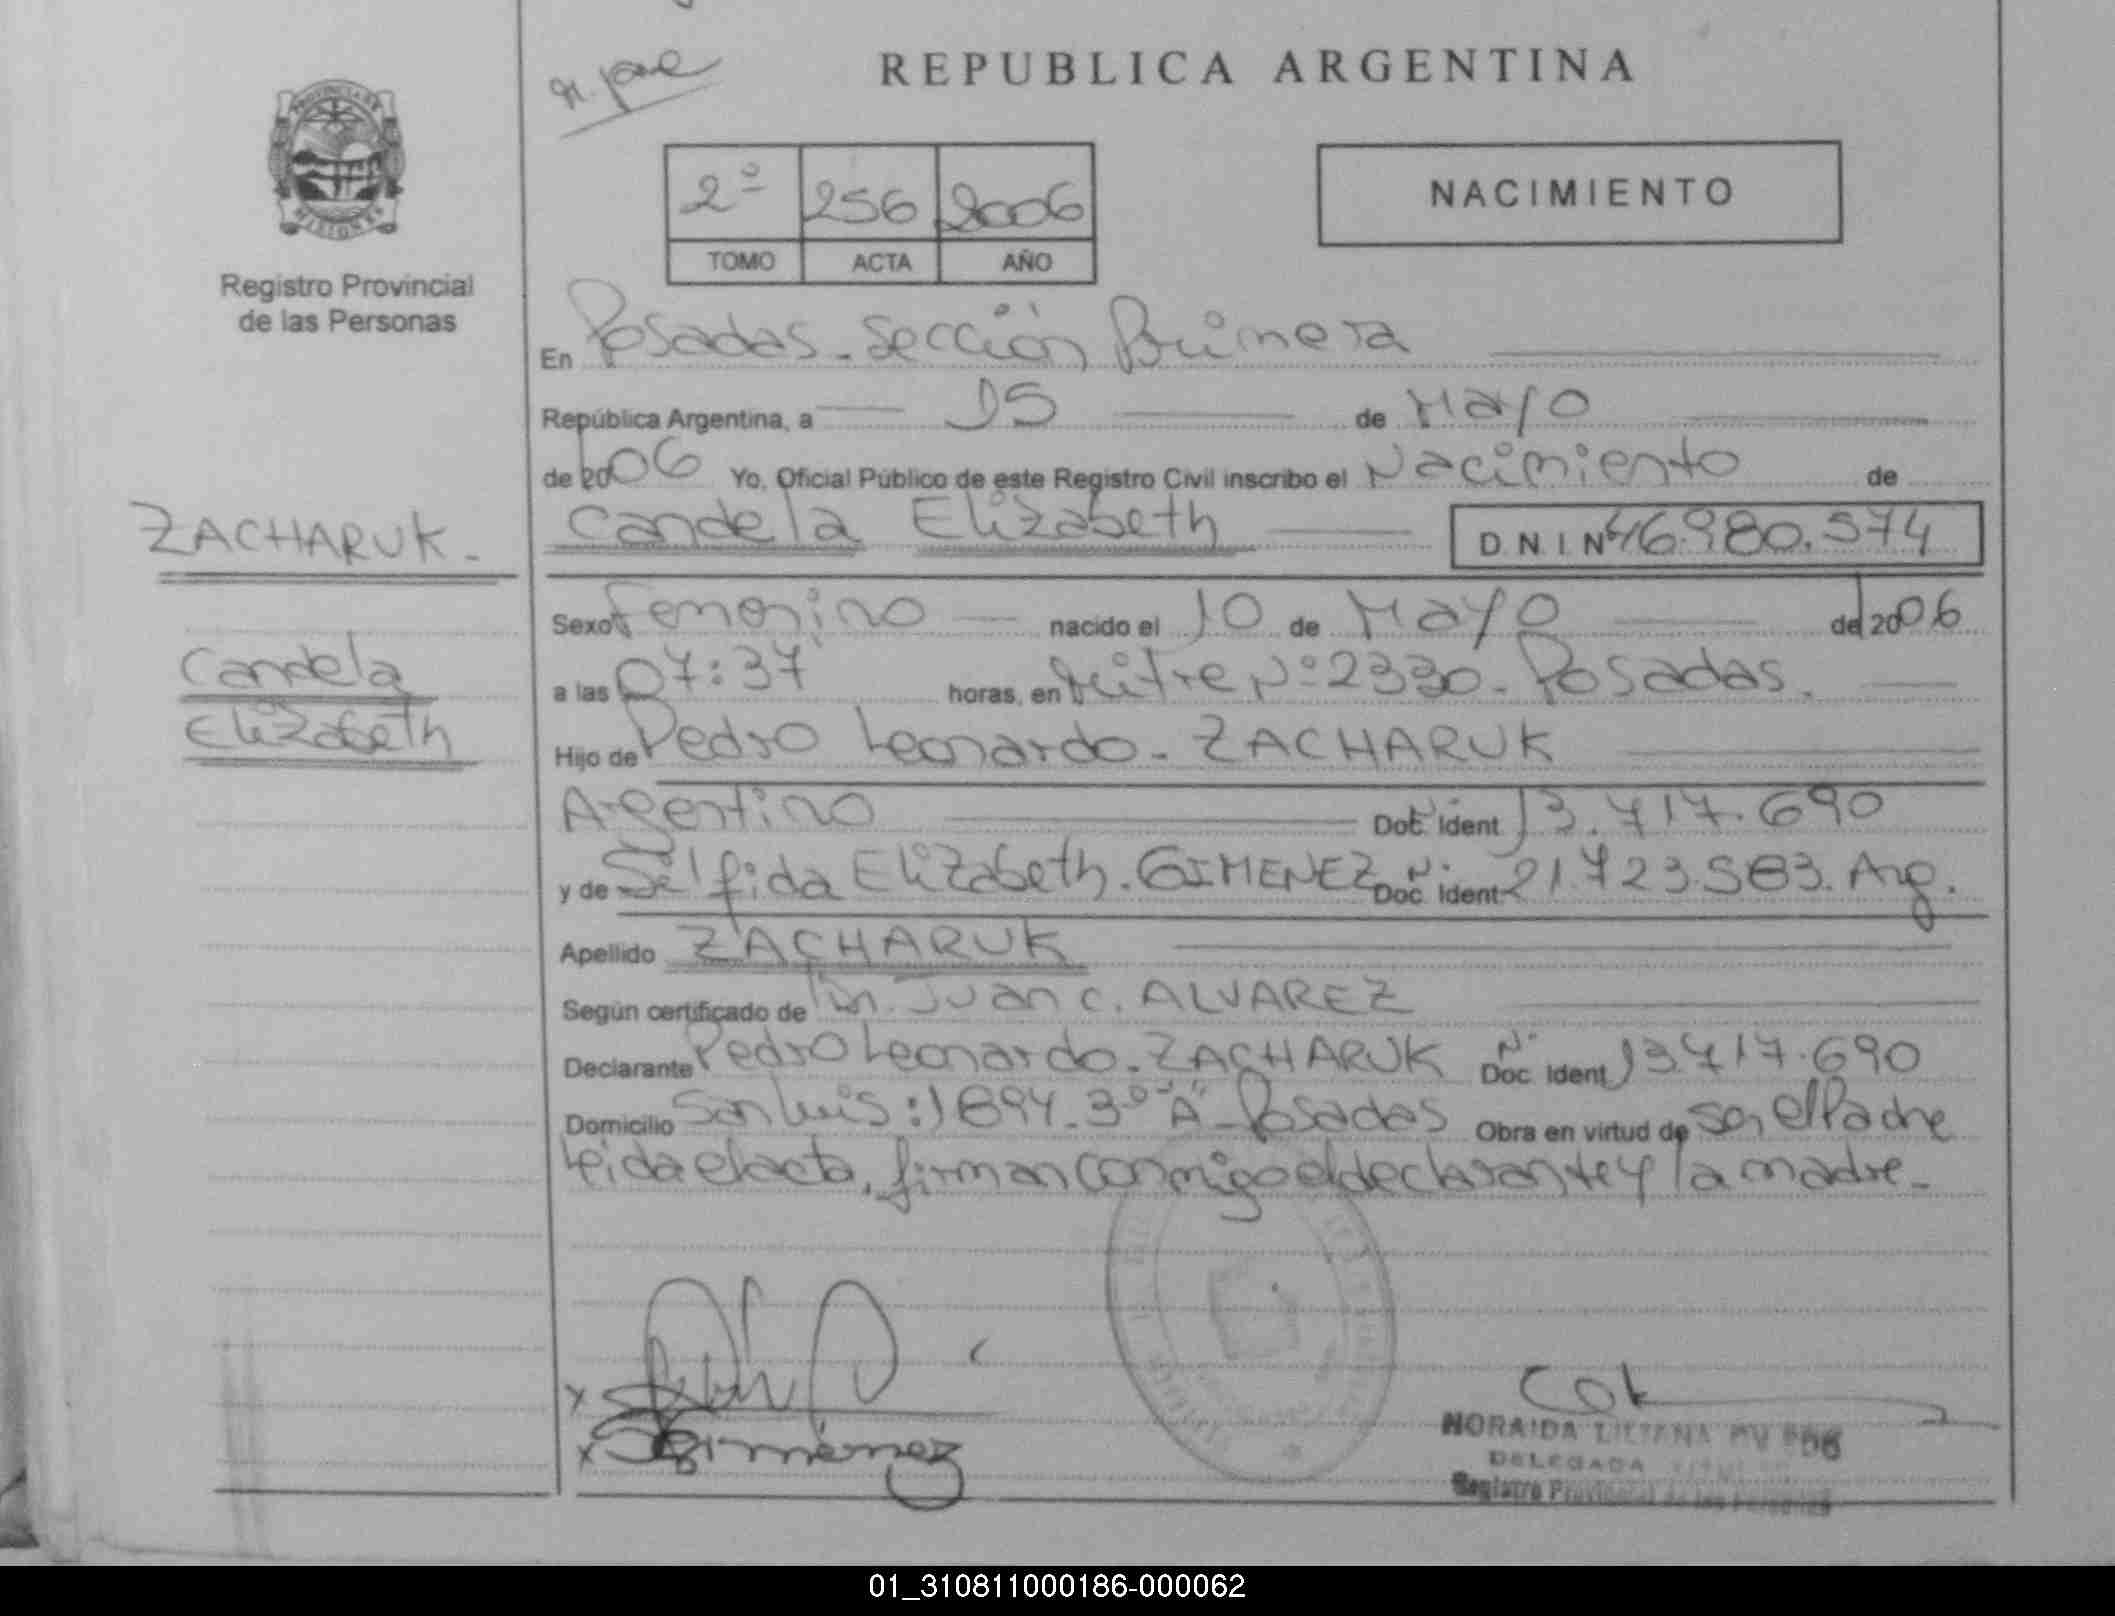 REPUBLICA ARGENTINA
NACIMIENTO
2º 256 2006
TOMO ACTA AÑO
Registro Provincial
de las Personas
En Posadas - Sección Primera
República Argentina, a 15 de Mayo
de 2006 Yo, Oficial Público de este Registro Civil inscribo el Nacimiento de
ZACHARUK -
Candela Elizabeth D.N.I. Nº 46.980.574
Candela
Elizabeth
Sexo Femenino nacido el 10 de Mayo de 2006
a las 07:37 horas, en Mitre Nº 2330 - Posadas.
Hijo de Pedro Leonardo - ZACHARUK
Argentino Doc. Ident 13.717.690
y de Elizabeth. GIMENEZ Doc. Ident 21.723.583. Arg.
Apellido ZACHARUK
Según certificado de Juan C. ALVAREZ
Declarante Pedro Leonardo - ZACHARUK Nº Doc. Ident 13.717.690
Domicilio San Luis: 1894 - 3º "A" - Posadas Obra en virtud de Ser el Padre
Leida el acta, firman conmigo el declarante y la madre -
x
x Gimenez
NORAIDA LILIANA
DELEGADA
Registro Provincial de las Personas
01_310811000186-000062